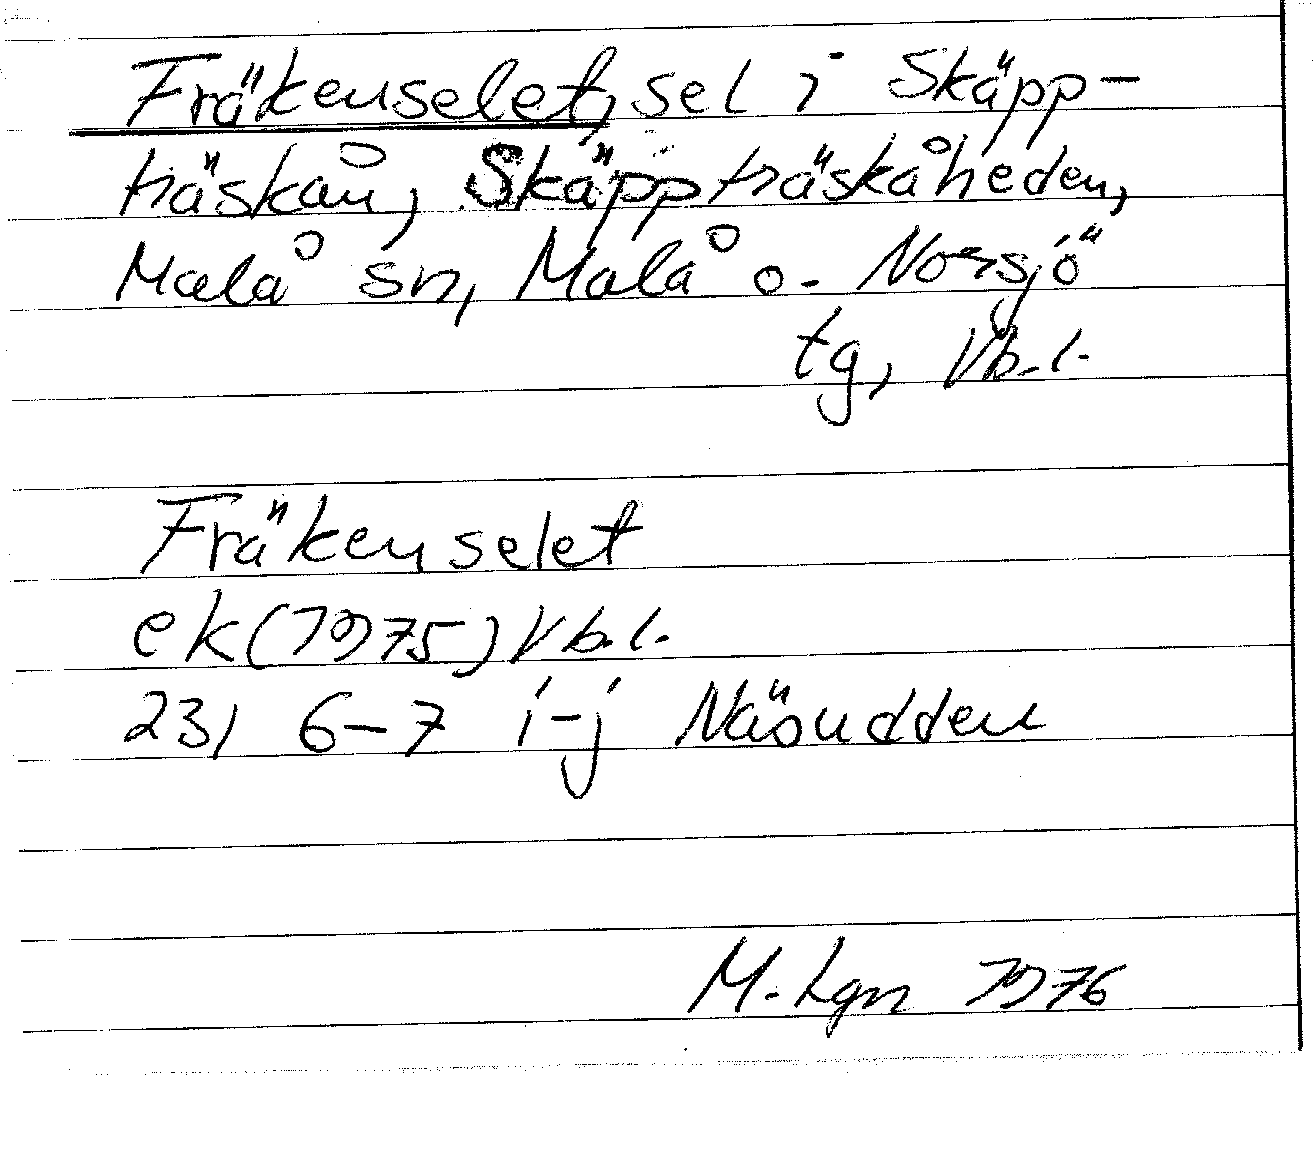 Fräkenselet, sel i Skäpp-
träskån, Skäppträskåheden,
Malå sn, Malå o. Norsjö
tg, Vb.l.
Fräkenselet
ek(1975) Vb.l.
23I 6-7 i-j Näsudden
M. Lgn 1976